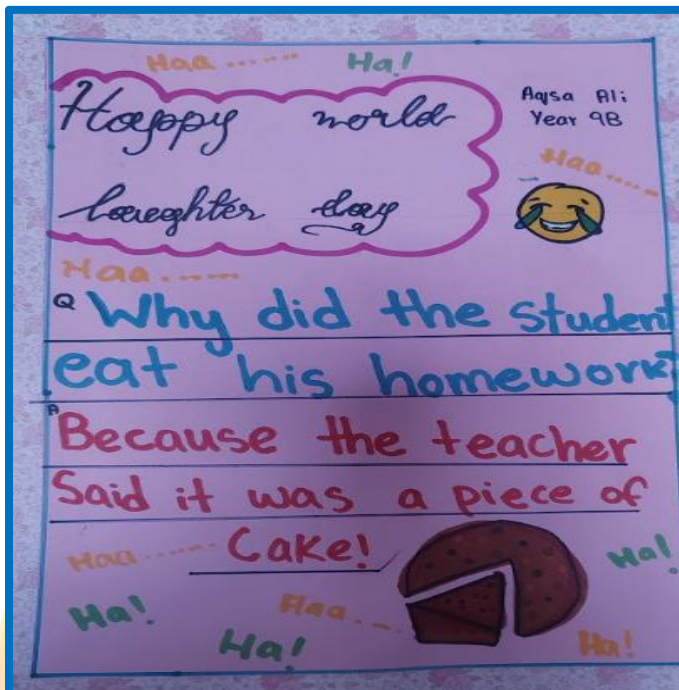 Haa ...... Ha!
Happy world
laughter day
Aqsa Ali
Year 9B
Haa .....
Haa ......
Q Why did the student
eat his homework?
A Because the teacher
Said it was a piece of
Cake!
Haa ......
Ha!
Ha!
Haa ....
Ha!
Ha!